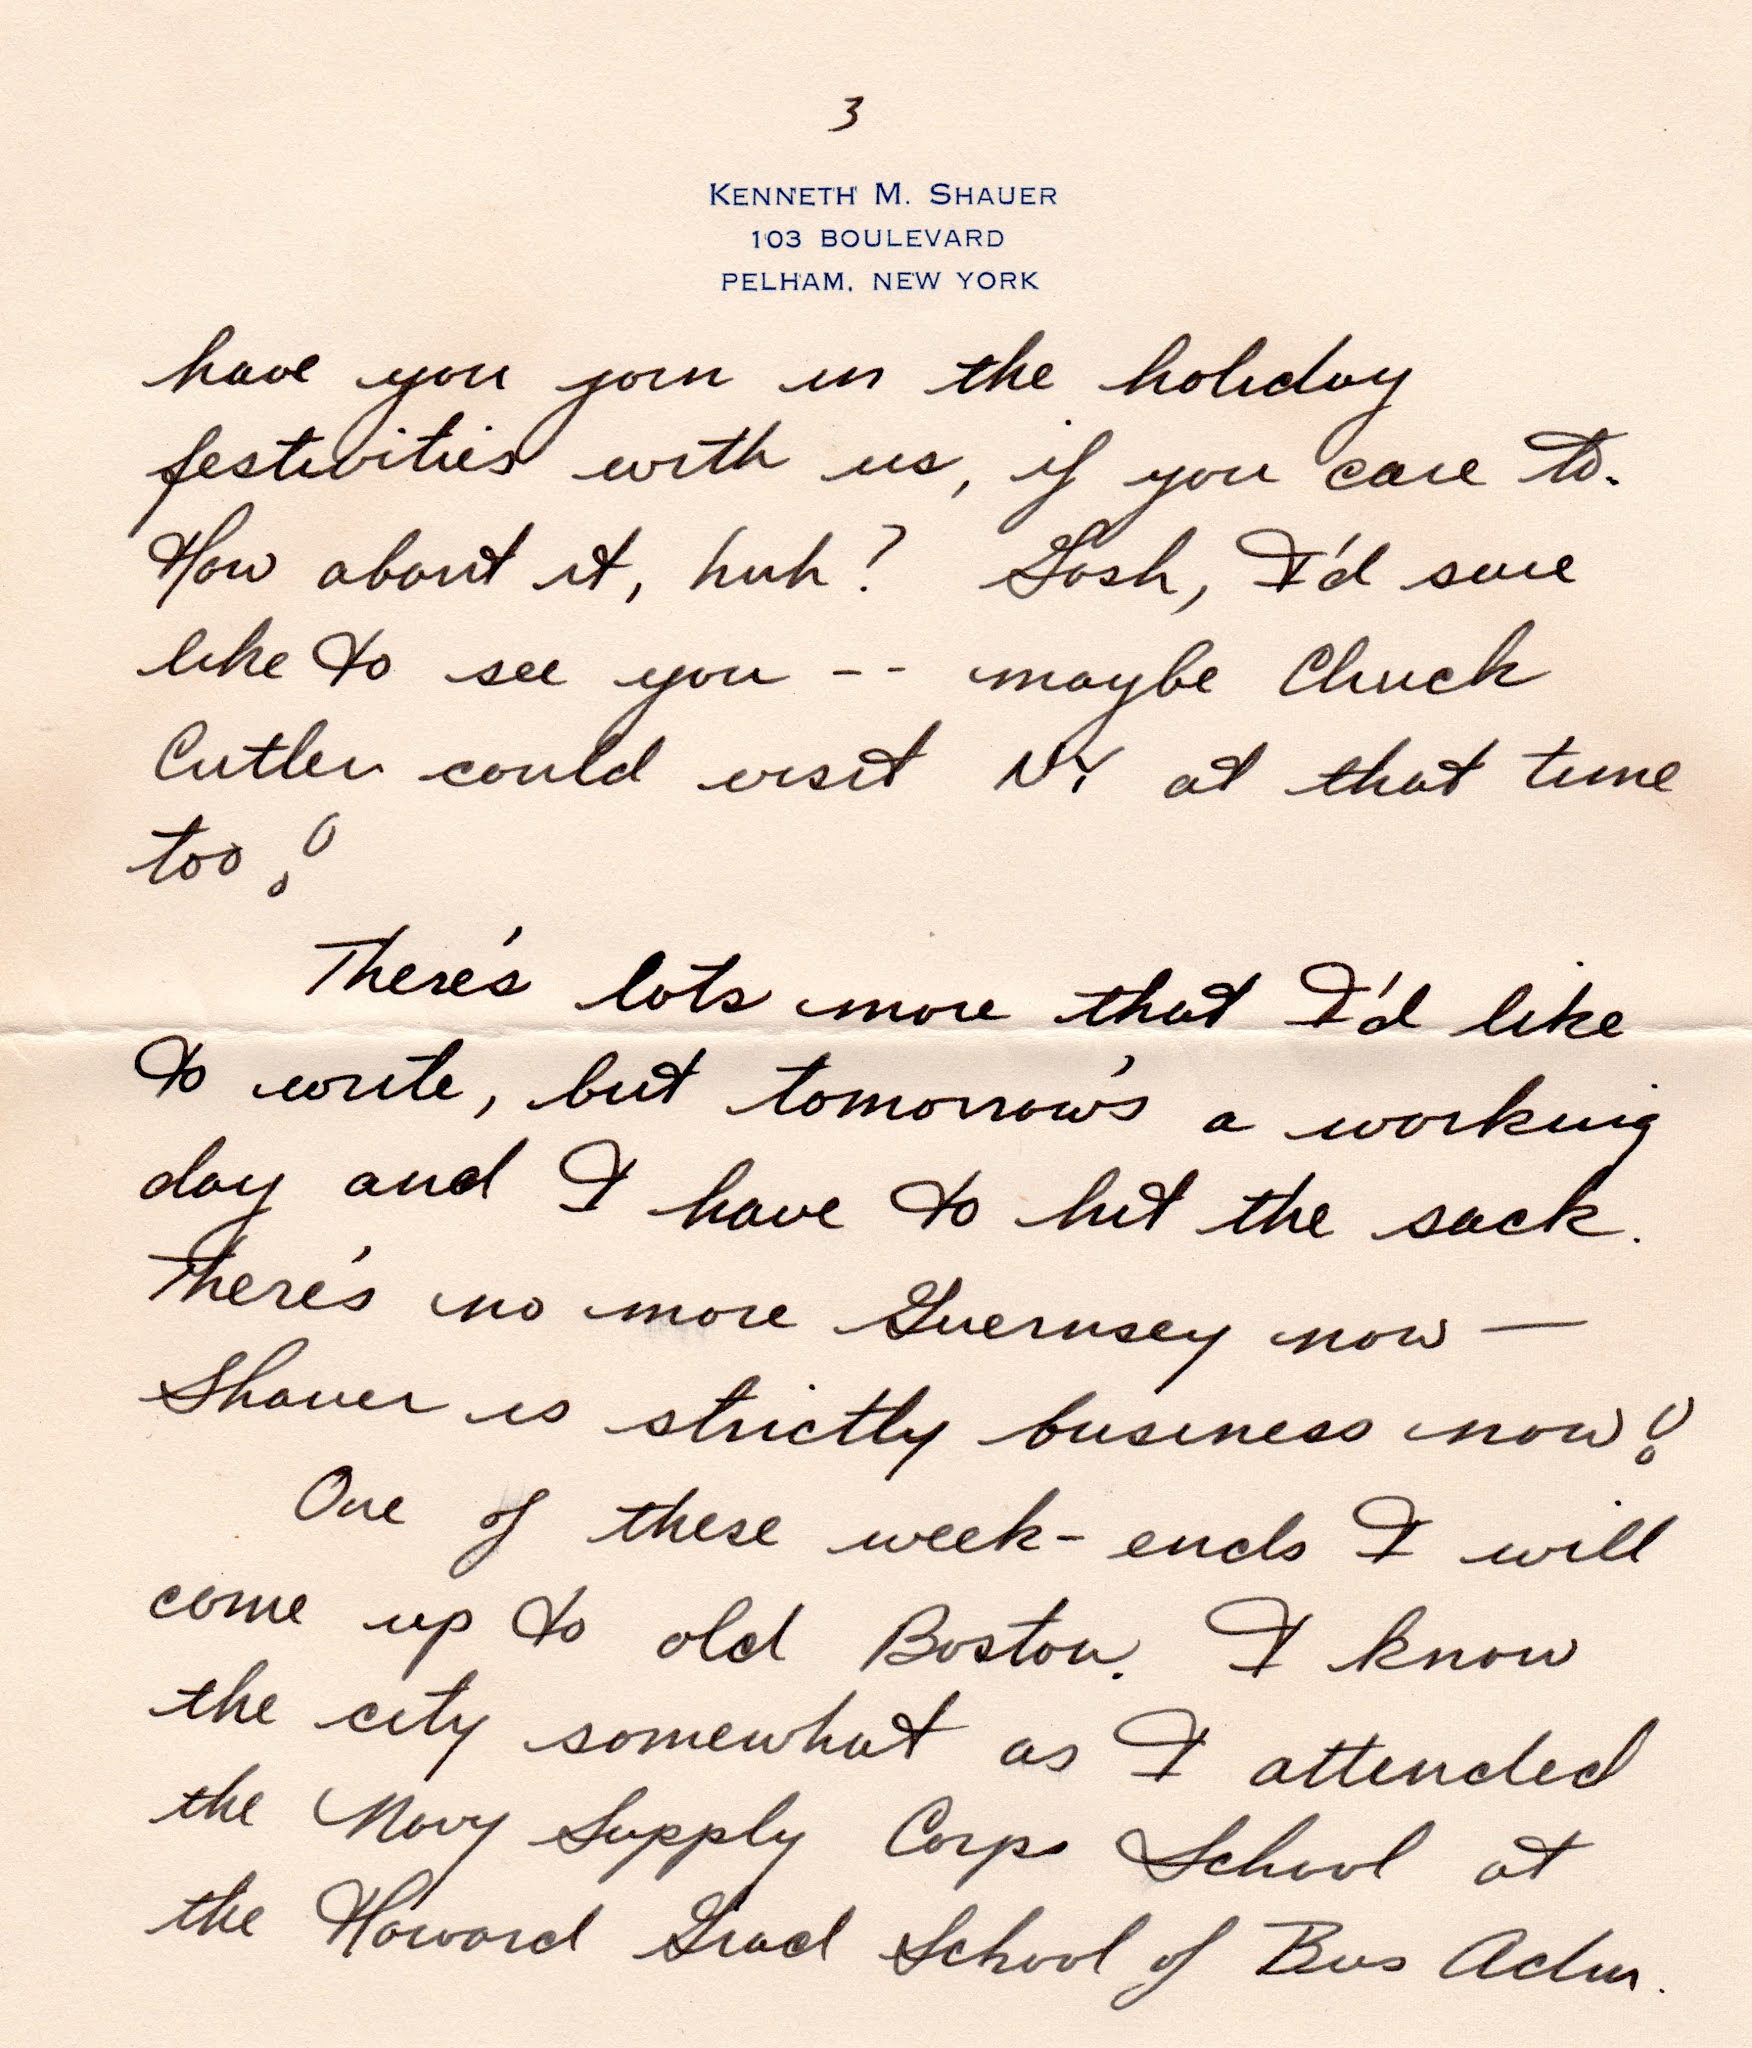 3
KENNETH M. SHAUER
103 BOULEVARD
PELHAM, NEW YORK
have you join in the holiday
festivities with us, if you care to.
How about it, huh? Gosh, I'd sure
like to see you -- maybe Chuck
Cutler could visit NY at that time
too!
There's lots more that I'd like
to write, but tomorrow's a working
day and I have to hit the sack.
There's no more Guernsey now —
Shauer is strictly business now!
One of these week-ends I will
come up to old Boston. I know
the city somewhat as I attended
the Navy Supply Corps School at
the Harvard Grad School of Bus Adm.